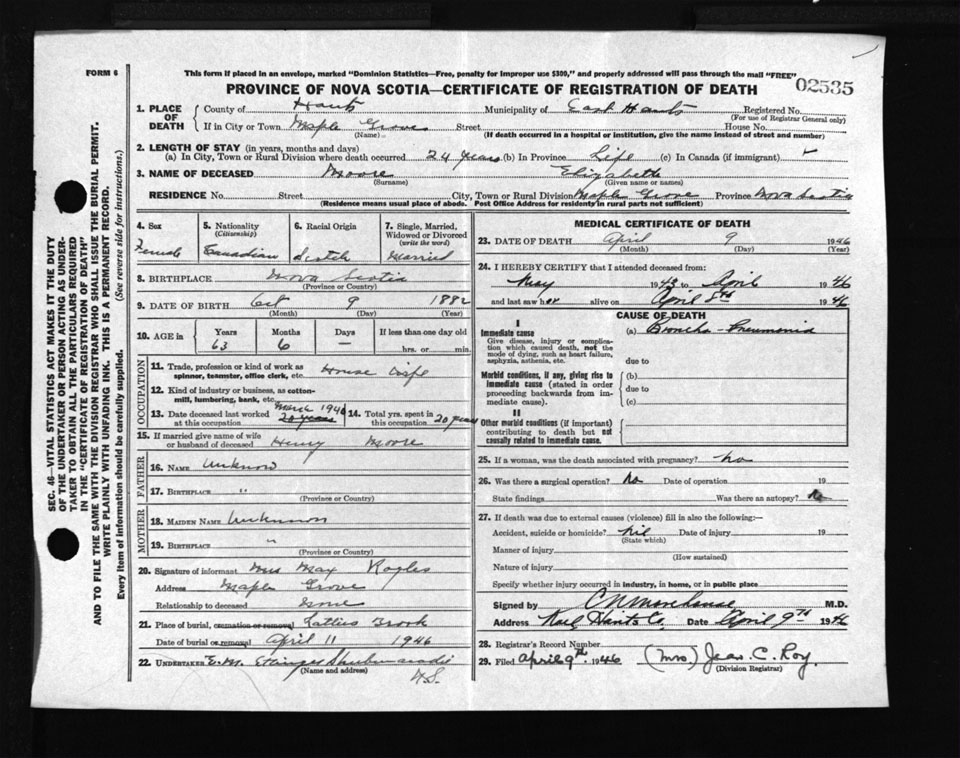 FORM 6
This form if placed in an envelope, marked "Dominion Statistics—Free, penalty for improper use $300," and properly addressed will pass through the mail "FREE"
PROVINCE OF NOVA SCOTIA—CERTIFICATE OF REGISTRATION OF DEATH
02535
1. PLACE OF DEATH County of Hants Municipality of East Hants Registered No.
(For use of Registrar General only)
If in City or Town Maple Grove Street House No.
(Name) (If death occurred in a hospital or institution, give the name instead of street and number)
2. LENGTH OF STAY (in years, months and days)
(a) In City, Town or Rural Division where death occurred 24 years (b) In Province Life (c) In Canada (if immigrant)
3. NAME OF DECEASED Moore Elizabeth
(Surname) (Given name or names)
RESIDENCE No. Street City, Town or Rural Division Maple Grove Province Nova Scotia
(Residence means usual place of abode. Post Office Address for residents in rural parts not sufficient)
4. Sex
Female
5. Nationality
(Citizenship)
Canadian
6. Racial Origin
Scotch
7. Single, Married, Widowed or Divorced
(write the word)
Married
8. BIRTHPLACE Nova Scotia
(Province or Country)
9. DATE OF BIRTH Oct 9 1882
(Month) (Day) (Year)
10. AGE in
Years Months Days If less than one day old
63 6 — hrs. or min.
OCCUPATION
11. Trade, profession or kind of work as
spinner, teamster, office clerk, etc. House wife
12. Kind of industry or business, as cotton-
mill, lumbering, bank, etc.
13. Date deceased last worked
at this occupation March 1946 20 years
14. Total yrs. spent in
this occupation 20 years
15. If married give name of wife
or husband of deceased Henry Moore
FATHER
16. NAME Unknown
17. BIRTHPLACE "
(Province or Country)
MOTHER
18. MAIDEN NAME Unknown
19. BIRTHPLACE "
(Province or Country)
20. Signature of informant Mrs Max
Address Maple Grove
Relationship to deceased None
21. Place of burial, cremation or removal Latties Brook
Date of burial or removal April 11 1946
22. UNDERTAKER E.M. Ettinger Shubenacadie
(Name and address) N.S.
MEDICAL CERTIFICATE OF DEATH
23. DATE OF DEATH April 9 1946
(Month) (Day) (Year)
24. I HEREBY CERTIFY that I attended deceased from:
May 1943 to April 1946
and last saw her alive on April 8th 1946
CAUSE OF DEATH
I
Immediate cause
Give disease, injury or complica-
tion which caused death, not the
mode of dying, such as heart failure,
asphyxia, asthenia, etc.
(a) Broncho-Pneumonia
due to
Morbid conditions, if any, giving rise to
immediate cause (stated in order
proceeding backwards from im-
mediate cause).
(b)
due to
(c)
II
Other morbid conditions (if important)
contributing to death but not
causally related to immediate cause.
25. If a woman, was the death associated with pregnancy? No
26. Was there a surgical operation? No Date of operation 19
State findings Was there an autopsy? No
27. If death was due to external causes (violence) fill in also the following:—
Accident, suicide or homicide? nil Date of injury 19
(State which)
Manner of injury
(How sustained)
Nature of injury
Specify whether injury occurred in industry, in home, or in public place
Signed by C N Morehouse M.D.
Address Hants Co. Date April 9th 1946
28. Registrar's Record Number
29. Filed April 9th 1946 (Mrs) Jean C. Roy.
(Division Registrar)
SEC. 46—VITAL STATISTICS ACT MAKES IT THE DUTY
OF THE UNDERTAKER OR PERSON ACTING AS UNDER-
TAKER TO OBTAIN ALL THE PARTICULARS REQUIRED
IN THE "CERTIFICATE OF REGISTRATION OF DEATH"
AND TO FILE THE SAME WITH THE DIVISION REGISTRAR WHO SHALL ISSUE THE BURIAL PERMIT.
WRITE PLAINLY WITH UNFADING INK. THIS IS A PERMANENT RECORD.
Every item of information should be carefully supplied. (See reverse side for instructions.)